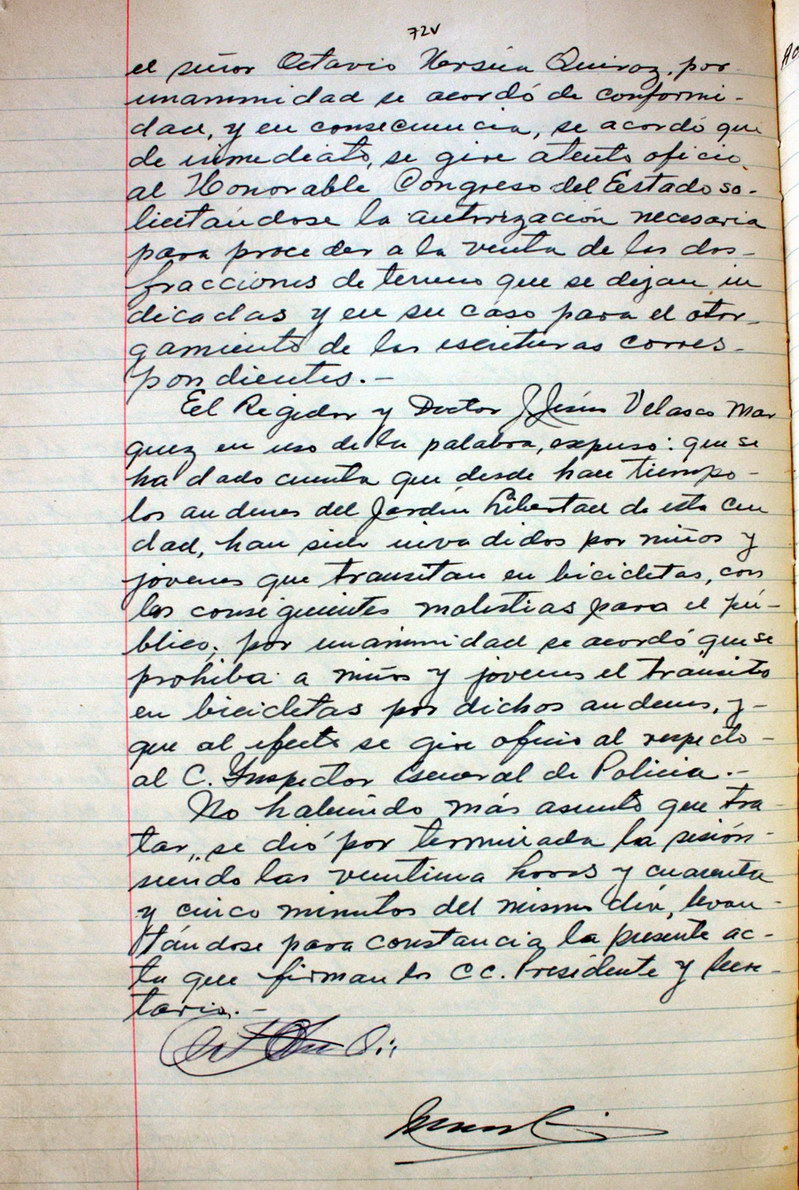 72v
el señor Octavio Nersúa Quiroz, por
unanimidad se acordó de conformi-
dad, y en consecuencia, se acordó que
de inmediato, se gire atento oficio
al Honorable Congreso del Estado so-
licitándose la autorización necesaria
para proceder a la venta de las dos-
fracciones de terreno que se dejan in
dicadas y en su caso para el otor-
gamiento de las escrituras corres-
pondientes.-
El Regidor y Doctor J. Jesús Velasco Mar
quez en uso de la palabra, expuso: que se
ha dado cuenta que desde hace tiempo-
los andenes del Jardín Libertad de esta ciu
dad, han sido invadidos por niños y
jóvenes que transitan en bicicletas, con
las consiguientes molestias para el pú-
blico; por unanimidad se acordó que se
prohiba a niños y jovenes el transito
en bicicletas por dichos andenes, y-
que al efecto se gire oficio al respecto-
al C. Inspector General de Policía.-
No habiendo más asunto que tra-
tar, se dió por terminada la sesión-
siendo las veintiuna horas y cuarenta
y cinco minutos del mismo día, levan-
tándose para constancia la presente ac-
ta que firman los CC. Presidente y Secre-
tario.-